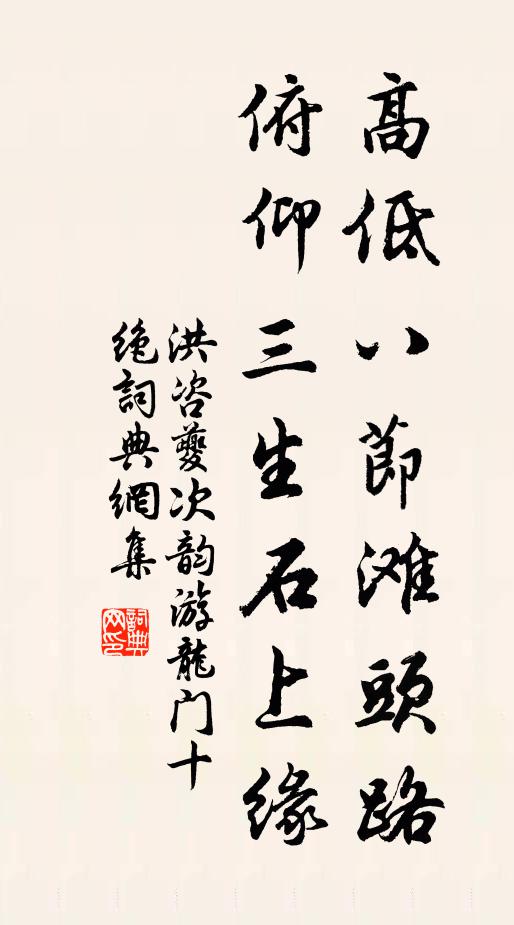 高低八節滩頭路
俯仰三生石上緣
洪咨夔次韵游龍门十
绝詞典網集
詞典網印